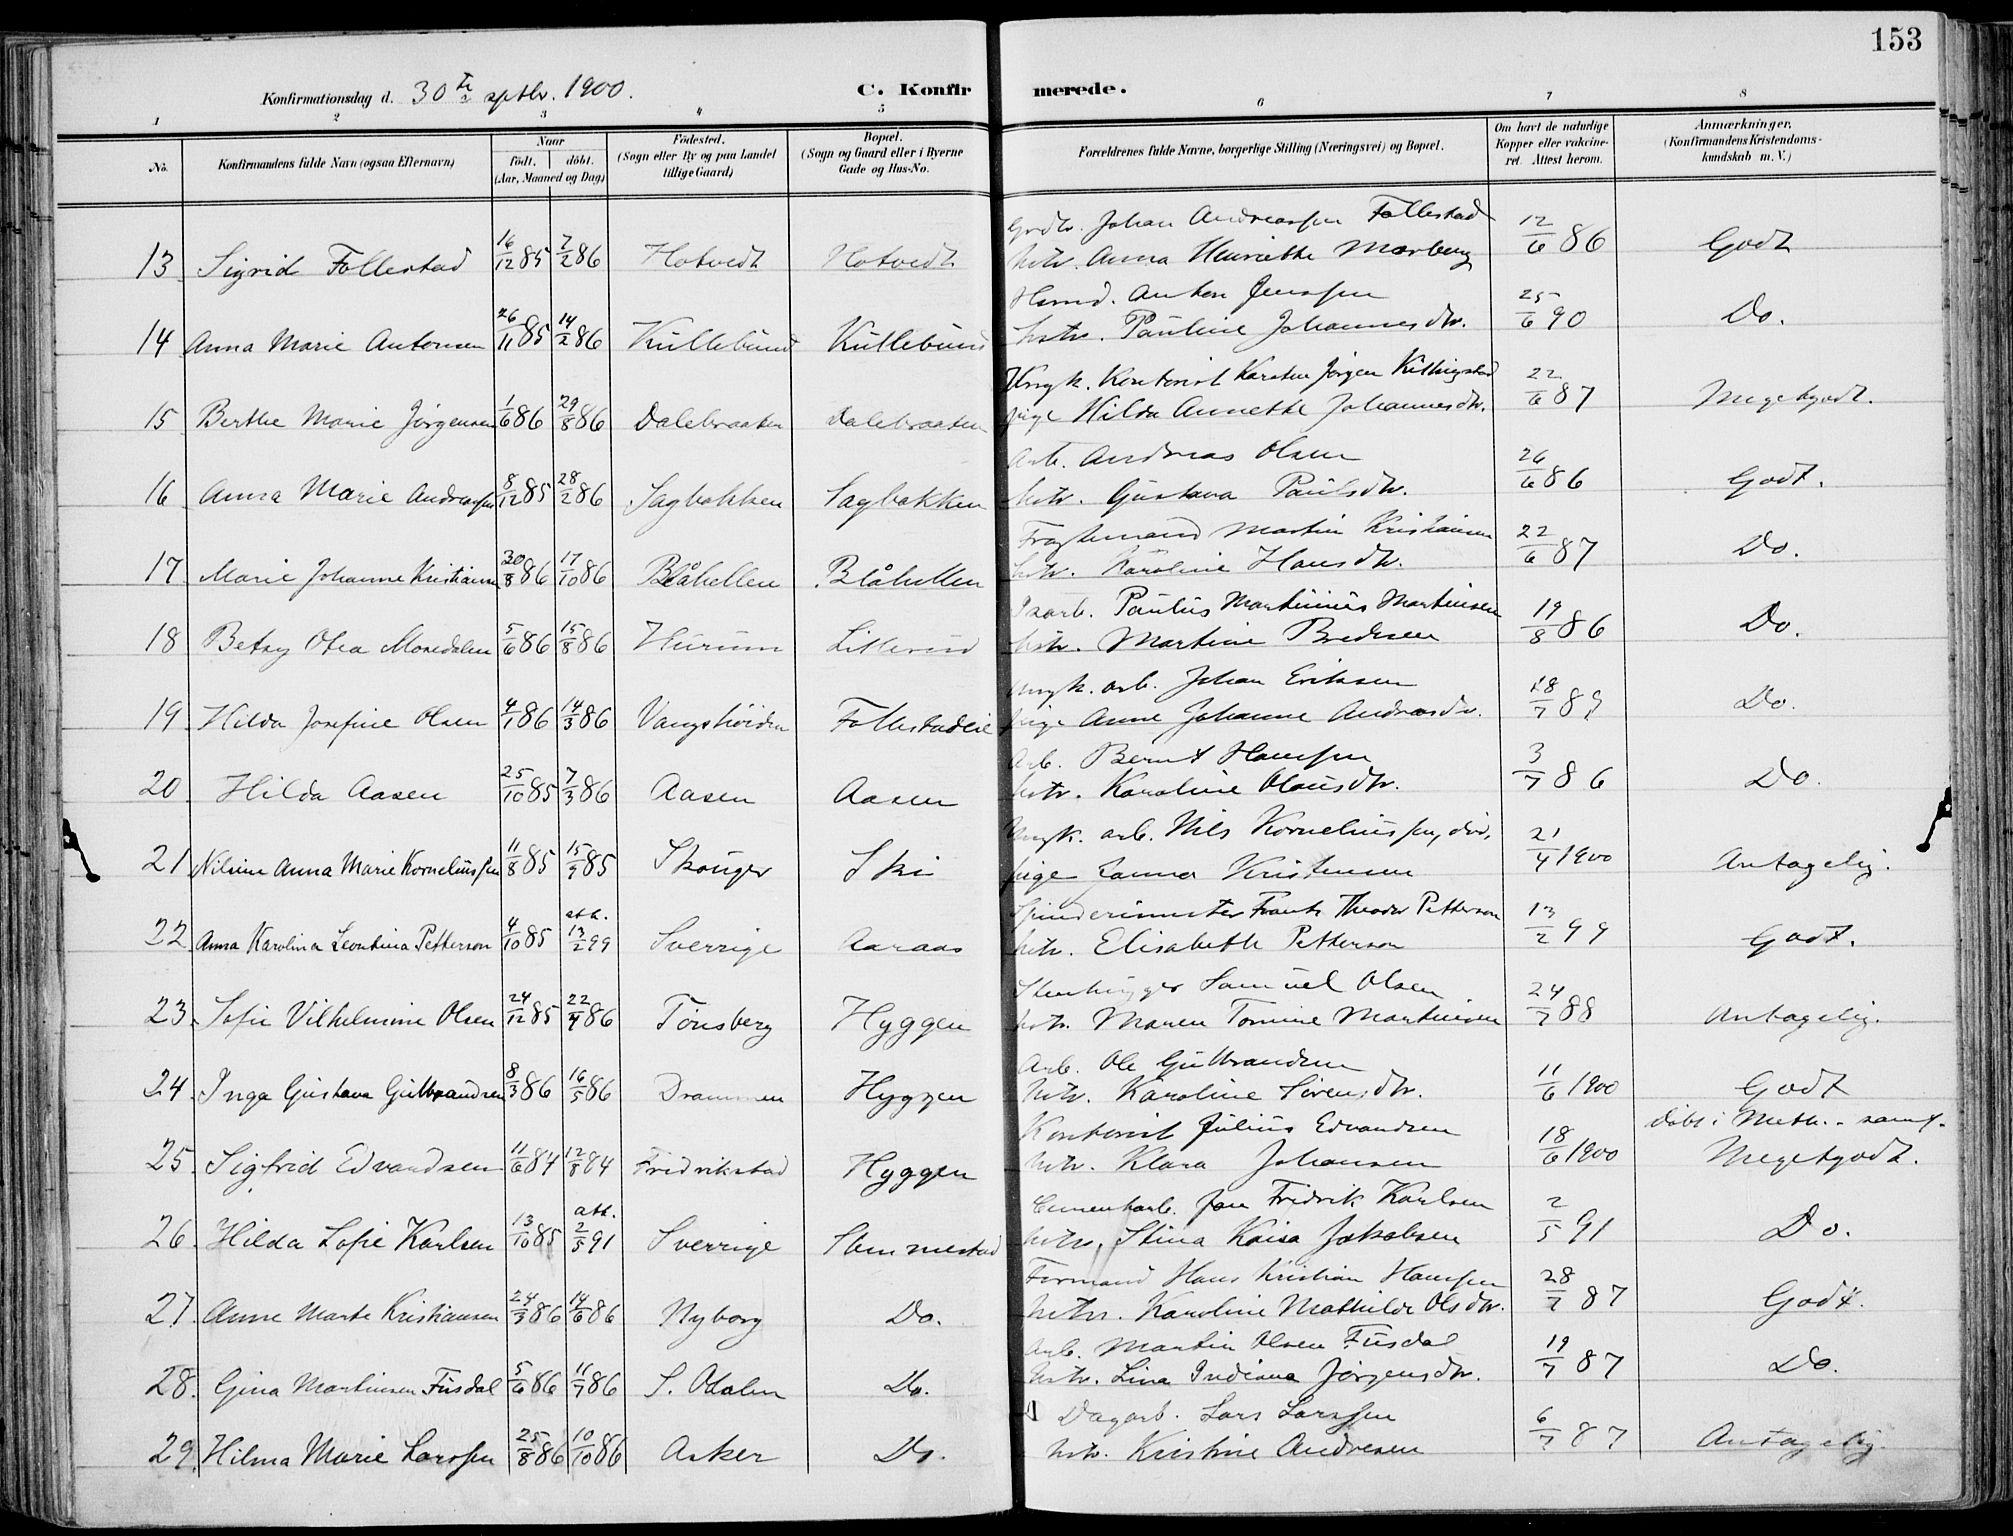 153
Konfirmationsdag d. 30te septbr. 1900.
C. Konfirmerede.
1 2 3 4 5 6 7 8
No.
Konfirmandens fulde Navn (ogsaa Efternavn)
Naar
født. døbt.
(Aar, Maaned og Dag)
Fødested.
(Sogn eller By og paa Landet
tillige Gaard)
Bopæl.
(Sogn og Gaard eller i Byerne
Gade og Hus-No.
Forældrenes fulde Navne, borgerlige Stilling (Næringsvei) og Bopæl.
Om havt de naturlige
Kopper eller vakcine-
ret. Attest herom.
Anmærkninger.
(Konfirmandens Kristendoms-
kundskab m. V.)
Grdbr. Johan Andreassen Follestad
13 Sigrid Follestad 16/12 85 7/2 86 Hotvedt Hotvedt hstr. Anna Henriette Morberg 12/6 86 Godt
Hsmd. Anton Jenssen
14 Anna Marie Antonsen 26/11 85 14/2 86 Kullebund Kullebund hstr. Pauline Johannesdtr. 25/6 90 Do.
Ungk. Kontorist Karsten Jørgen Killingstad
15 Berthe Marie Jørgensen 1/6 86 29/8 86 Dalebraaten Dalebraaten pige Hilda Annette Johannesdtr. 22/6 87 Megetgodt.
Arb. Andreas Olsen
16 Anna Marie Andreassen 8/12 85 28/2 86 Sagbakken Sagbakken hstr. Gustava Paulsdtr. 26/6 86 Godt.
Fragtemand Martin Kristiansen
17 Marie Johanne Kristiansen 30/8 86 17/10 86 Blåhellen Blåhellen hstr. Karoline Hansdtr. 22/6 87 Do.
Paulus Martinius Martinsen
18 Betsy Otea Mosedalen 5/6 86 15/8 86 Hurum Lillerud hstr. Martine Bredesen 19/8 86 Do.
Ungk. arb. Johan Eriksen
19 Hilda Josefine Olsen 4/1 86 14/3 86 Vangshøiden Follestadeie pige Anne Johanne Andreasdtr. 18/7 89 Do.
Arb. Bernt Hanssen
20. Hilda Aasen 25/10 85 7/3 86 Aasen Aasen hstr. Karoline Olausdtr. 3/7 86 Do.
Ungk. arb. Nils Korneliussen, død,
21 Nilsine Anna Marie Korneliussen 11/8 85 15/9 85 Skouger Ski pige Janna Kristensen 21/4 1900 Antagelig.
Spinderimester Frants Theodor Petterson
22 Anna Karolina Leontina Petterson 4/10 85 att. 13/2 99 Sverrige Aaraas hstr. Elisabeth Petterson 13/2 99 Godt.
Stenhugger Samuel Olsen
23. Sofie Vilhelmine Olsen 24/12 85 22/4 86 Tønsberg Hyggen hstr. Maren Tomine Martinsen 24/7 88 Antagelig.
Arb. Ole Gulbrandsen
24. Inga Gustava Gulbrandsen 8/3 86 16/5 86 Drammen Hyggen hstr. Karoline Sørensdtr. 11/6 1900 Godt
Kontorist Julius Edvardsen døbt i Meth. - samf.
25. Sigfrid Edvardsen 11/6 84 12/8 84 Fridrikstad Hyggen hstr. Klara Johansen 18/6 1900 Megetgodt.
Cementarb. Jon Fridrik Karlsen
26. Hilda Sofie Karlsen 13/10 85 att. 2/5 91 Sverrige Slemmestad hstr. Stina Kaisa Jakobsen 2/5 91 Do.
Formand Hans Kristian Hanssen
27. Anne Marte Kristiansen 24/3 86 14/6 86 Nyborg Do. hstr. Karoline Mathilde Olsdtr. 28/7 87 Godt.
Arb. Martin Olsen Fusdal
28. Gina Martinsen Fusdal 5/6 86 11/7 86 S. Odalen Do. hstr. Lina Indiana Jørgensdtr. 19/7 87 Do.
Dagarb. Lars Larssen
29. Hilma Marie Larssen 25/8 86 10/10 86 Asker Do. hstr. Kristine Andresen 6/7 87 Antagelig.